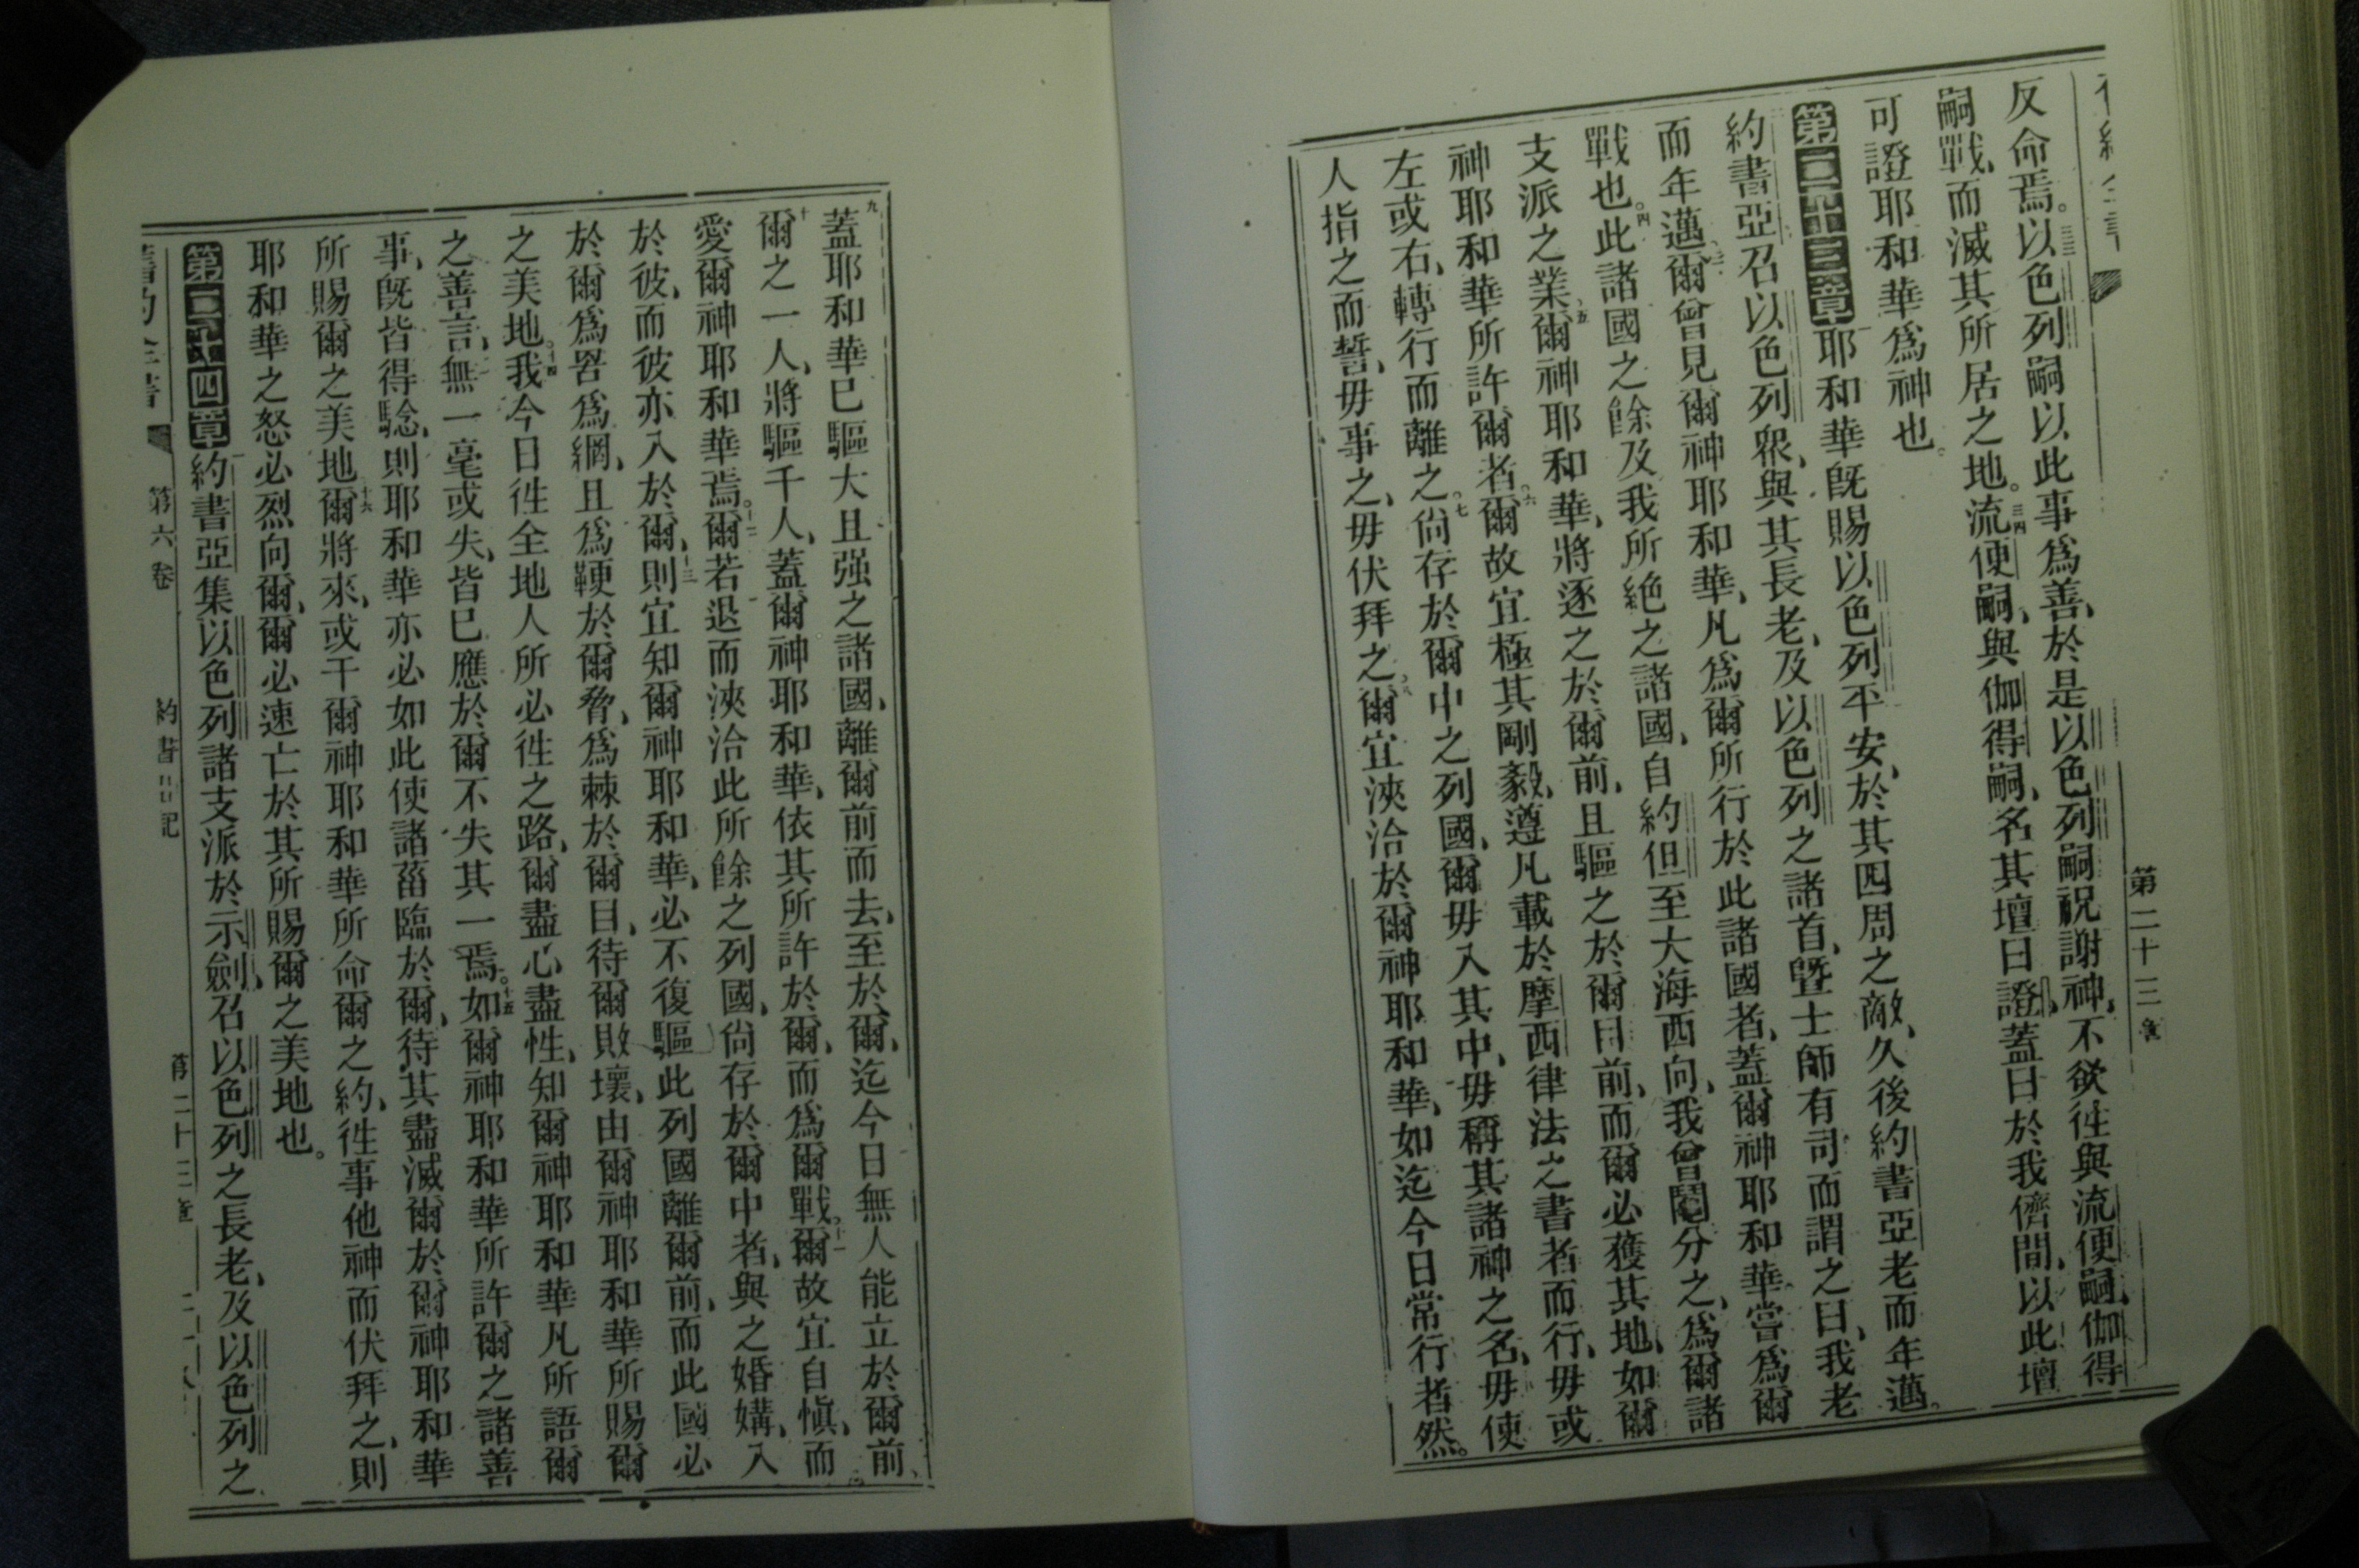 第二十三章
反命焉。以色列嗣以此事爲善、於是以色列嗣祝謝神、不欲徃與流便嗣、伽得
嗣戰、而滅其所居之地。三四流便嗣、與伽得嗣、名其壇曰證、蓋曰於我儕間、以此壇
可證耶和華爲神也。
第二十三章一耶和華旣賜以色列平安、於其四周之敵、久後約書亞老而年邁。
約書亞召以色列衆、與其長老、及以色列之諸首、曁士師有司、而謂之曰、我老
而年邁、三爾曾見爾神耶和華、凡爲爾所行於此諸國者、蓋爾神耶和華嘗爲爾
戰也。四此諸國之餘及我所絶之諸國、自約但至大海西向、我曾鬮分之、爲爾諸
支派之業、五爾神耶和華、將逐之於爾前、且驅之於爾目前、而爾必獲其地、如爾
神耶和華所許爾者。六爾故宜極其剛毅、遵凡載於摩西律法之書者而行、毋或
左或右、轉行而離之。七尙存於爾中之列國、爾毋入其中、毋稱其諸神之名、毋使
人指之而誓、毋事之、毋伏拜之、八爾宜浹洽於爾神耶和華、如迄今日常行者然。
九蓋耶和華已驅大且强之諸國、離爾前而去、至於爾、迄今日無人能立於爾前、
十爾之一人、將驅千人、蓋爾神耶和華、依其所許於爾、而爲爾戰。十一爾故宜自愼、而
愛爾神耶和華焉。十二爾若退而浹洽此所餘之列國、尙存於爾中者、與之婚媾、入
於彼、而彼亦入於爾、十三則宜知爾神耶和華、必不復驅此列國離爾前、而此國必
於爾爲罟爲網、且爲鞕於爾脅、爲棘於爾目、待爾敗壞、由爾神耶和華所賜爾
之美地。十四我今日徃全地人所必徃之路、爾盡心盡性、知爾神耶和華凡所語爾
之善言、無一毫或失、皆已應於爾不失其一焉。十五如爾神耶和華所許爾之諸善
事、旣皆得騐、則耶和華亦必如此使諸菑臨於爾、待其盡滅爾於爾神耶和華
所賜爾之美地、十六爾將來、或干爾神耶和華所命爾之約、徃事他神而伏拜之、則
耶和華之怒必烈向爾、爾必速亡於其所賜爾之美地也。
第二十四章一約書亞集以色列諸支派於示劍、召以色列之長老、及以色列之
舊約全書 第六卷 約書亞記 第二十三章